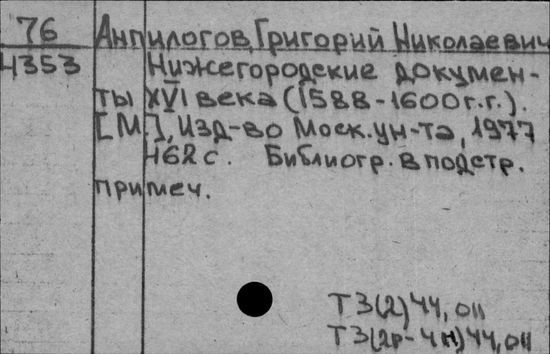 76 Анпилогов, Григорий Николаевич
4353 Нижегородские докумен-
ты XVI века (1588-1600г.г.).
[М.], Изд-во Моск. ун-та, 1977
462 с. Библиогр. в подстр.
примеч.
Т3(2)44,011
Т3(2Р-4Н)44,011